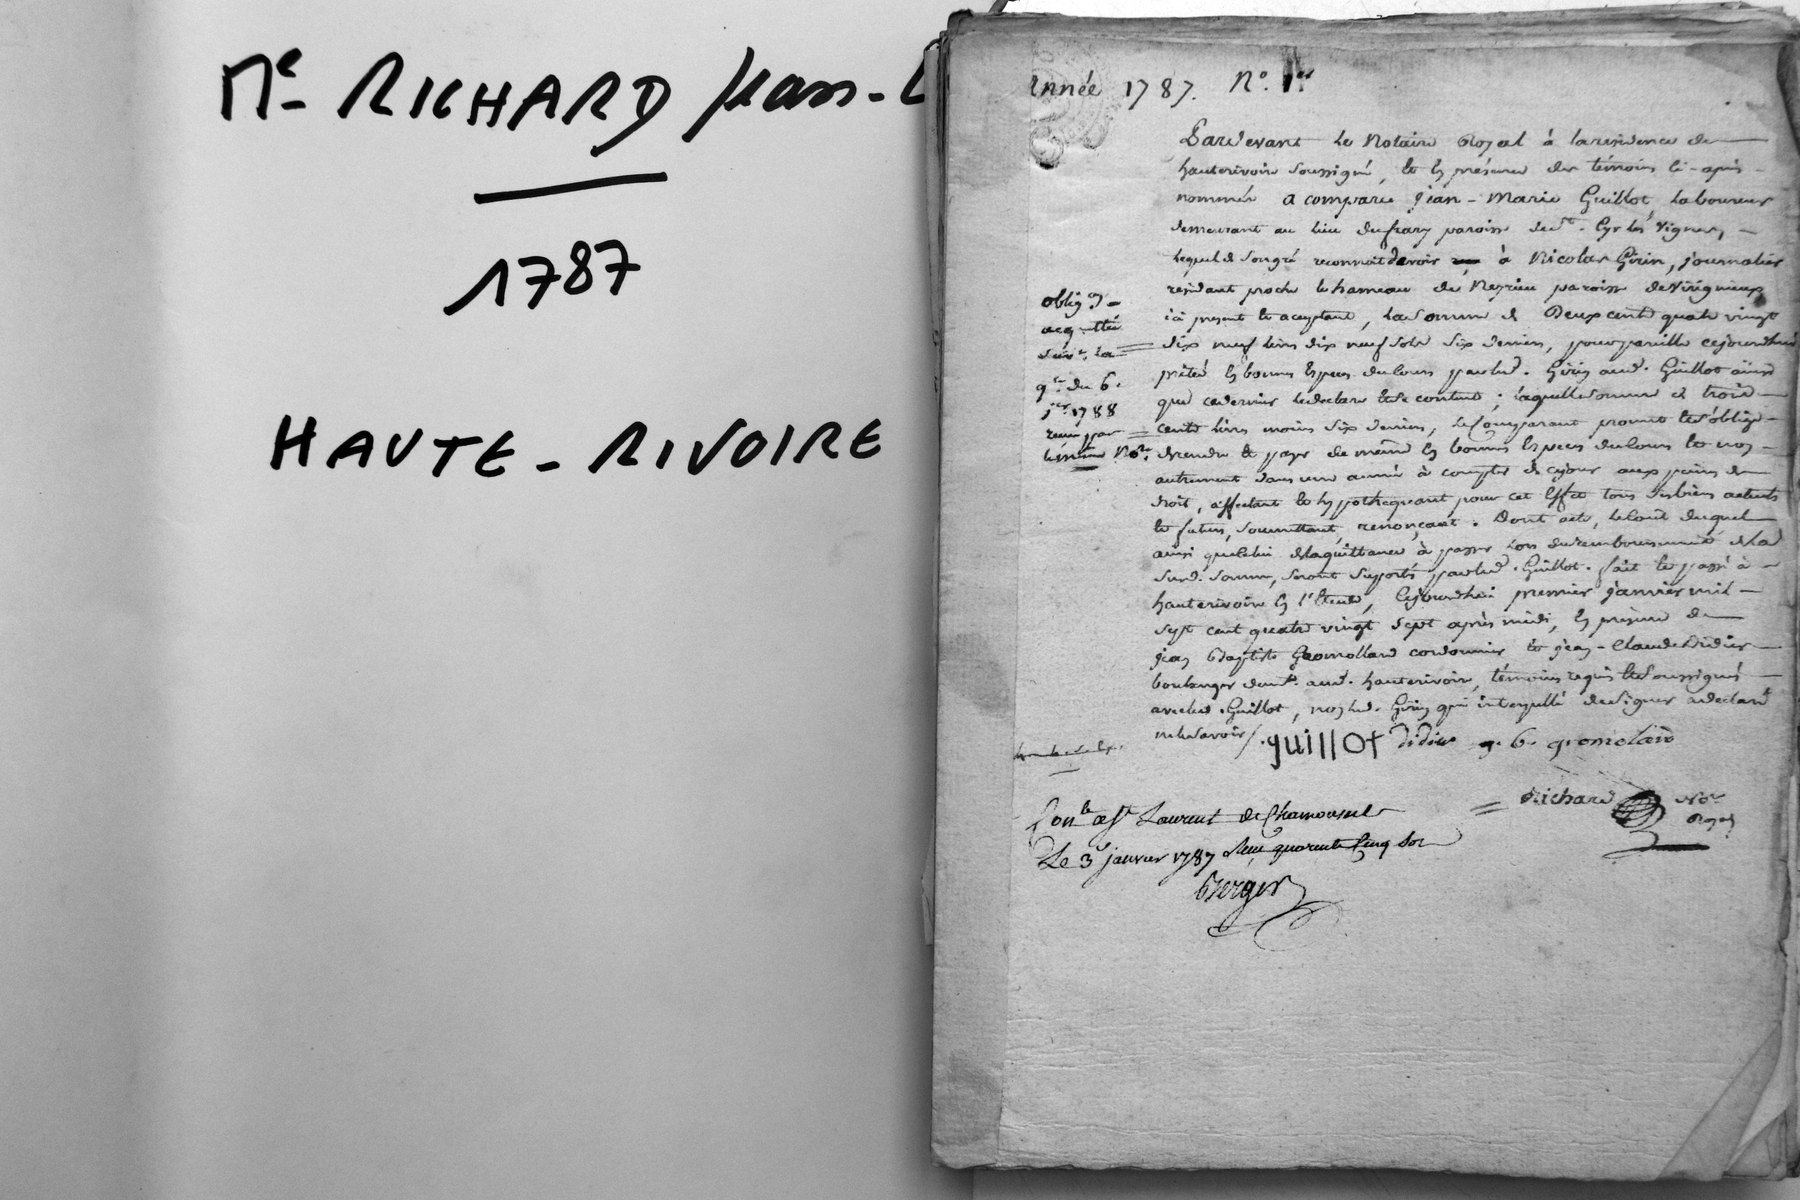 Me RICHARD Jean-C
1787
HAUTE-RIVOIRE
Année 1787. No. 1er
Pardevant Le Notaire Royal à la residence de
hauterivoire soussigné, et En présence des témoins ci-après
nommés a comparu jean-Marie Guillot, Laboureur
demeurant au lieu dufrary paroisse de st. Cyr les Vignes,
Lequel de son gré reconnait devoir à Nicolas Girin, journalier
residant proche le hameau de Neyrieu paroisse de Virigneux
ici present et aceptant, La somme de Deux cents quatre vingt
dix neuf livres dix neuf sols six deniers, pour pareille cejourdhui
prêtée En bonnes Especes du Cours par led. Girin aud. Guillot ainsi
que ce dernier le declare Et se contente ; laquelle somme de trois
cents livres moins six deniers, Le Comparant promet Et s'oblige
de rendre Et payer de même En bonnes Especes du Cours Et non
autrement dans une année à compter de ce jour aux peines de
droit, affectant Et hypothequant pour cet Effet tous ses biens actuels
Et futurs, soumettant, renonçant. Dont acte, le Coût duquel
ainsi que celui de la quittance à passer Lors du remboursement de la
susd. somme, seront suportés par led. Guillot. fait Et passé à
hauterivoire En l'Etude, Cejourdhui premier janvier mil
sept cent quatre vingt sept après midi, En présence de
jean Baptiste Gromolland cordonnier Et jean-Claude Didier
boulanger demt. aud. hauterivoire, témoins requis Et soussignés
avec led. Guillot, non led. Girin qui interpellé de signer a declaré
ne le savoir /.
oblig.on
acquittée
suivt. la
qce. du 6.
jer. 1788
reçue par
le même No.re
guillot Didier j. b. gromolard
Richard Nore
Royal
Conlé a St Laurent de Chamousset
Le 3 janvier 1787 Reçu quarente Cinq sols
Berger